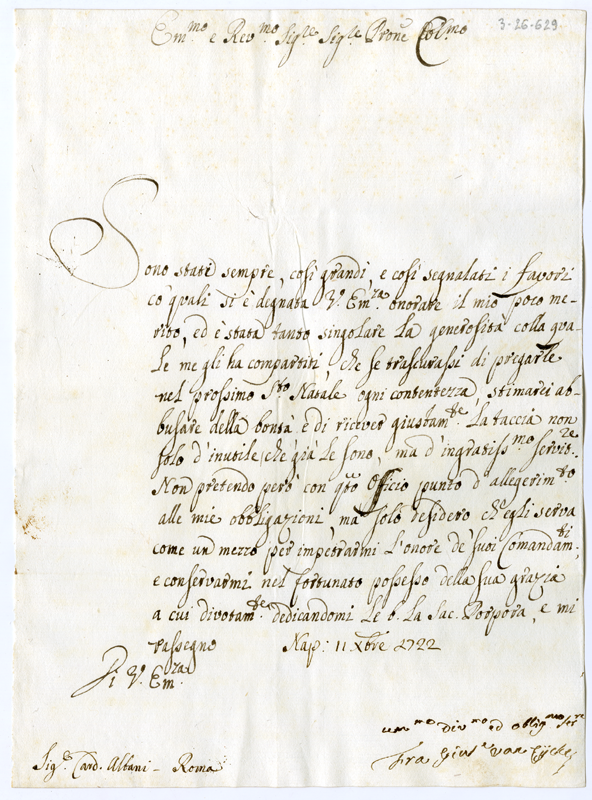 3-26-629
Em.mo e Rev.mo Sig.re Sig.re Prone Col.mo
Sono stati sempre, così grandi, e così segnalati i favori
co' quali si è degnata V. Em.za onorare il mio poco me-
rito, ed è stata tanto singolare la generosità colla qua-
le me gli ha compartiti, che se trascurassi di pregarle
nel prossimo S.to Natale ogni contentezza, stimarei ab-
busare della bontà e di ricever giustam.te La taccia non
solo d'inutile, che già Le sono, ma d'ingratiss.mo servit.re
Non pretendo però con q.to Officio punto d'allegerim.to
alle mie obbligazioni, ma solo desidero ch'egli serva
come un mezzo per impetrarmi L'onore de' suoi Comandam.ti;
e conservarmi nel fortunato possesso della sua grazia
a cui divotam.te dedicandomi Le b. La Sac. Porpora, e mi
rassegno Nap: 11 Xbre 1722
Di V. Em.za
um.mo div.mo ed oblig.mo ser.re
Sig.r Card. Albani - Roma
Fra Gius.e van Eycke